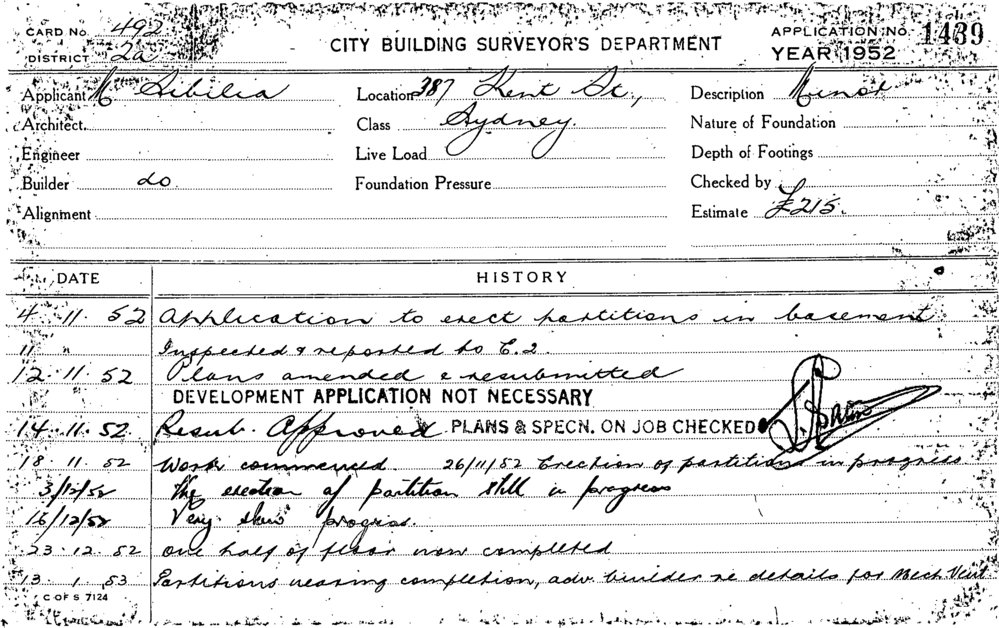 CARD No. 492
DISTRICT 2a
CITY BUILDING SURVEYOR'S DEPARTMENT
APPLICATION No. 1439
YEAR 1952
Applicant M Sibilia
Location 387 Kent St.,
Description Minor
Architect
Class Sydney.
Nature of Foundation
Engineer
Live Load
Depth of Footings
Builder do
Foundation Pressure
Checked by
Alignment
Estimate £215.
DATE HISTORY
4 . 11 . 52 Application to erect partitions in basement
11 " Inspected & reported to C.2.
12 . 11 . 52 Plans amended & resubmitted
DEVELOPMENT APPLICATION NOT NECESSARY
14 . 11 . 52 Resub. Approved PLANS & SPECN. ON JOB CHECKED
18 . 11 . 52 Work commenced. 26/11/52 Erection of partitions in progress
3/12/52 The erection of partition still in progress
16/12/52 Very slow progress.
23 . 12 . 52 One half of floor now completed
13 . 1 . 53 Partitions nearing completion, adv. builder re details for Mech Vent
C OF S 7124